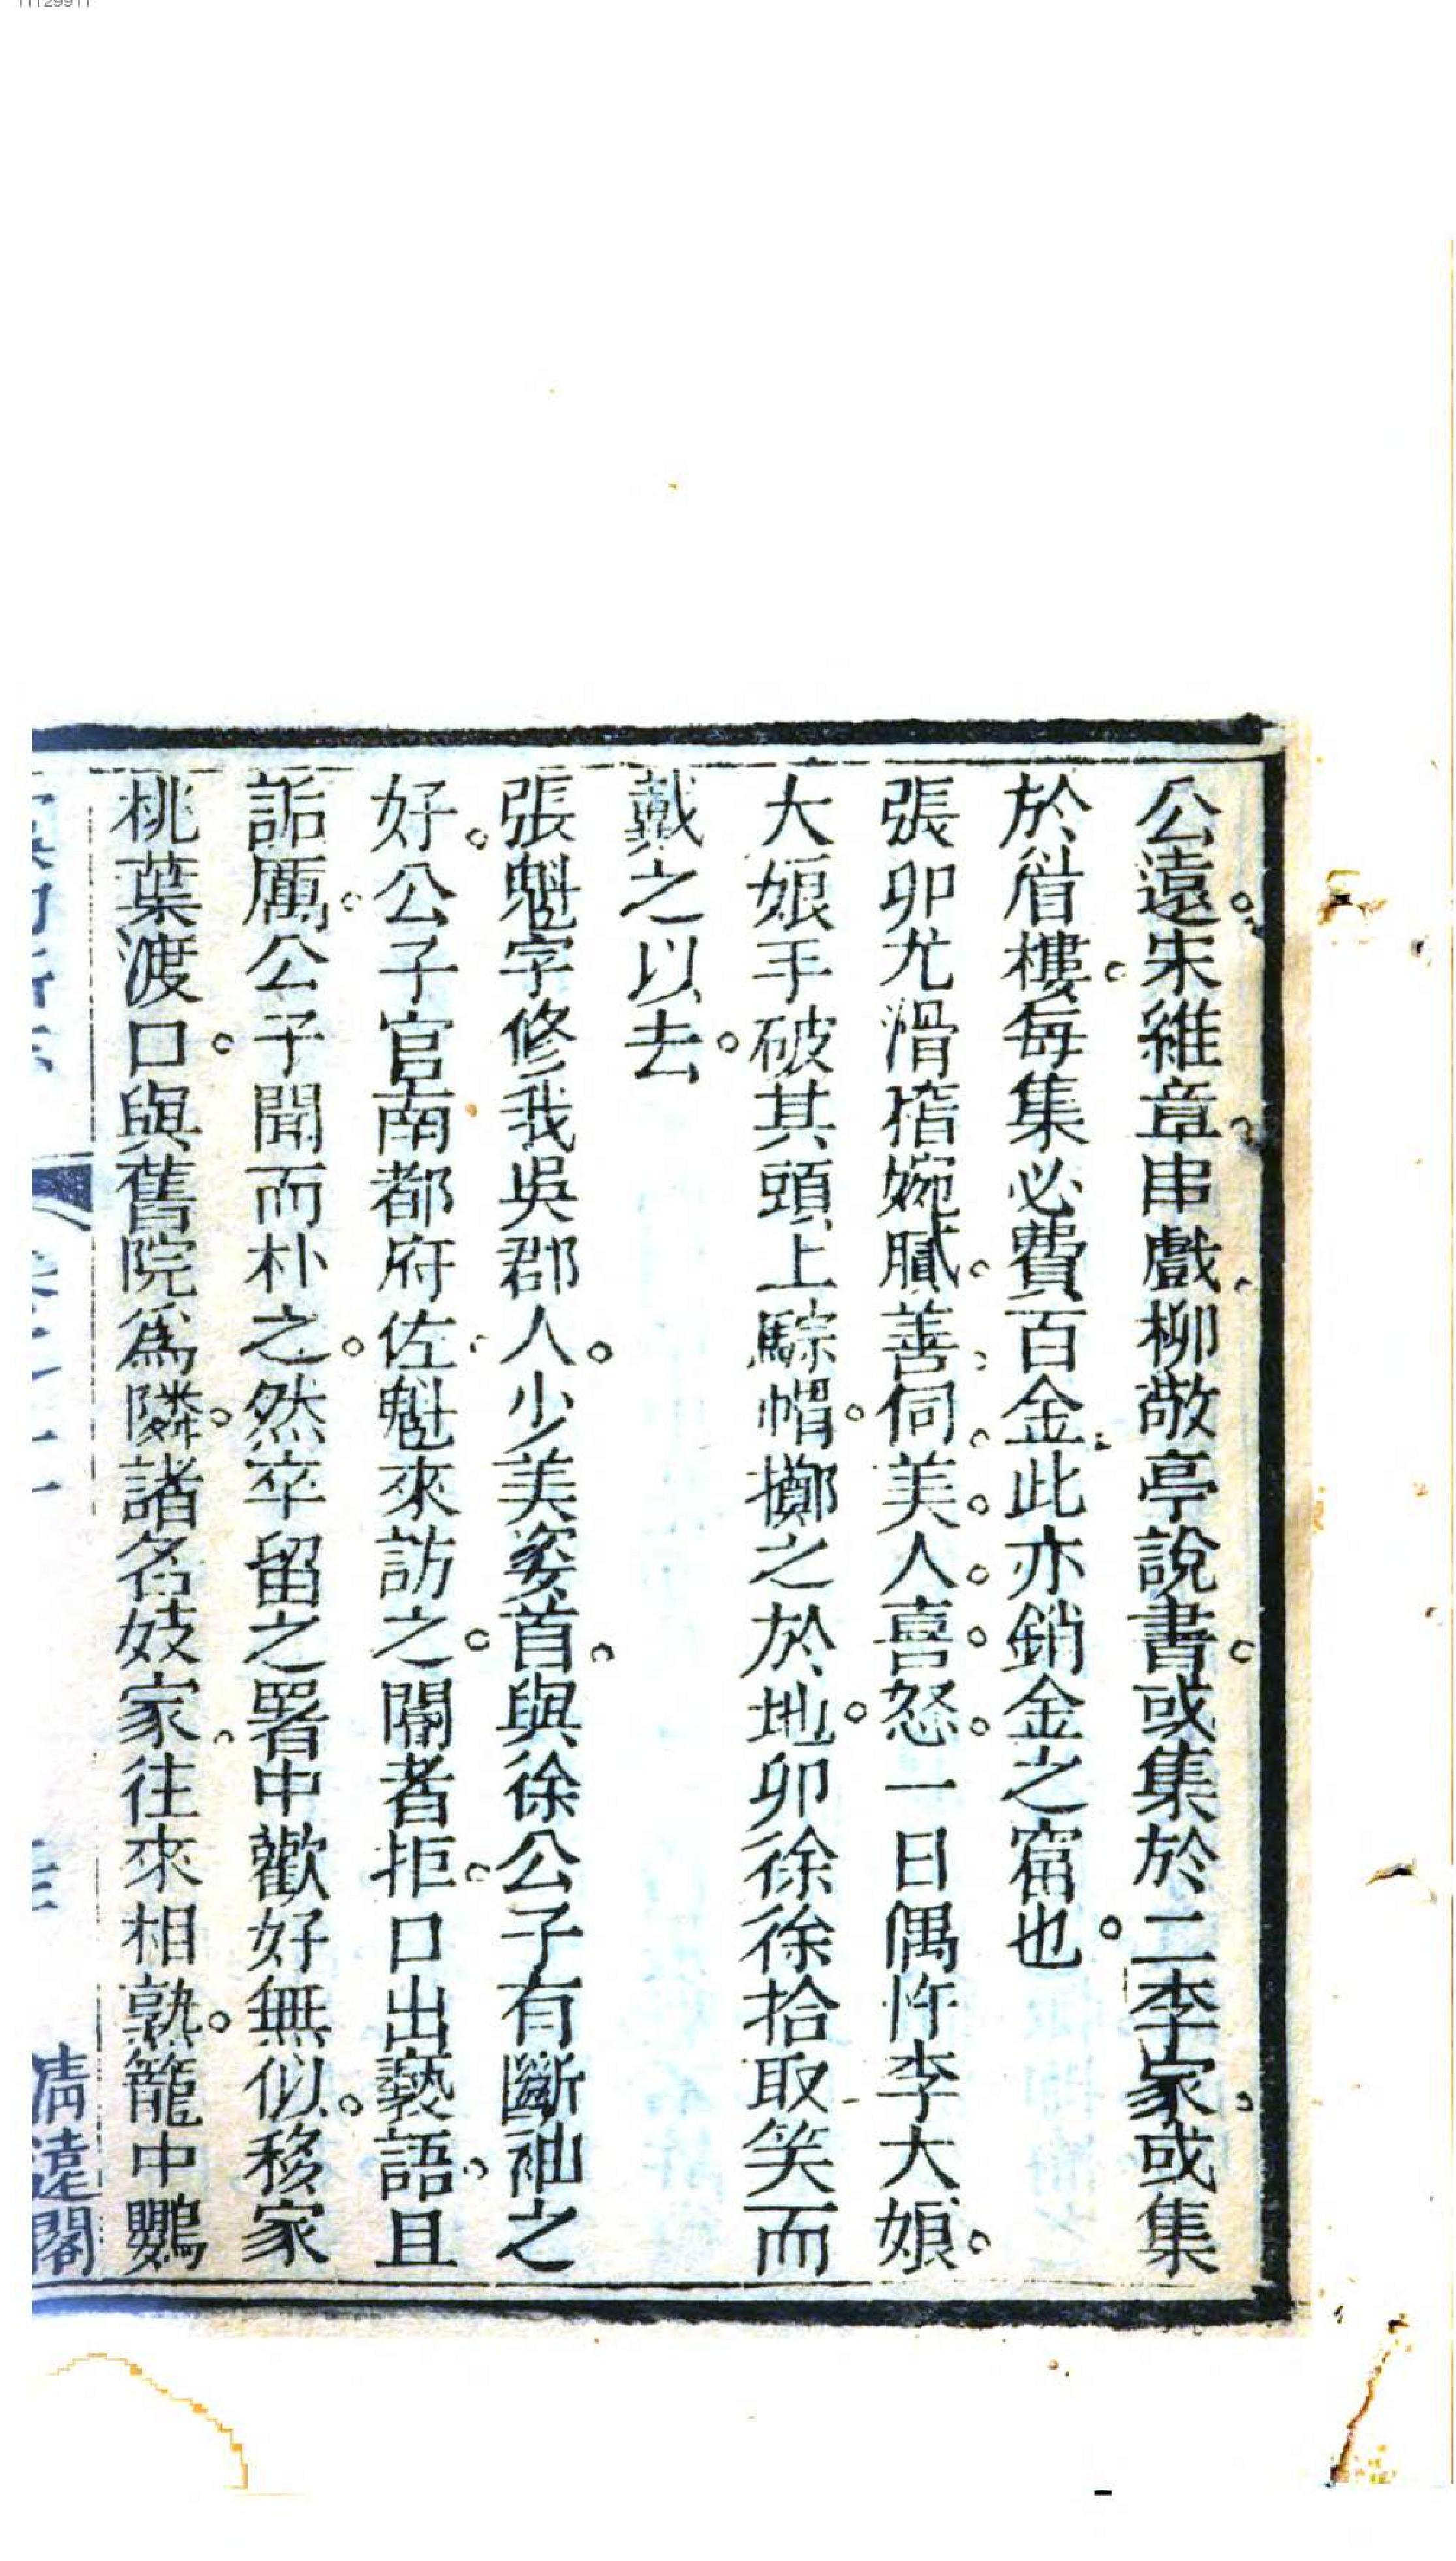 公遠。朱維章串戲、柳敬亭說書。或集於二李家、或集
於眉樓。每集必費百金、此亦銷金之窟也。
張卯尤滑稽婉膩。善伺美人喜怒。一日偶忤李大娘。
大娘手破其頭上騌帽。擲之於地。卯徐徐拾取笑而
戴之以去。
張魁字修我吳郡人。少美姿首。與徐公子有斷袖之
好。公子官南都府佐、魁來訪之。閽者拒。口出褻語、且
詬厲。公子聞而朴之。然卒留之署中歡好無似。移家
桃葉渡口。與舊院爲隣。諸名妓家、往來相熟。籠中鸚
清遠閣